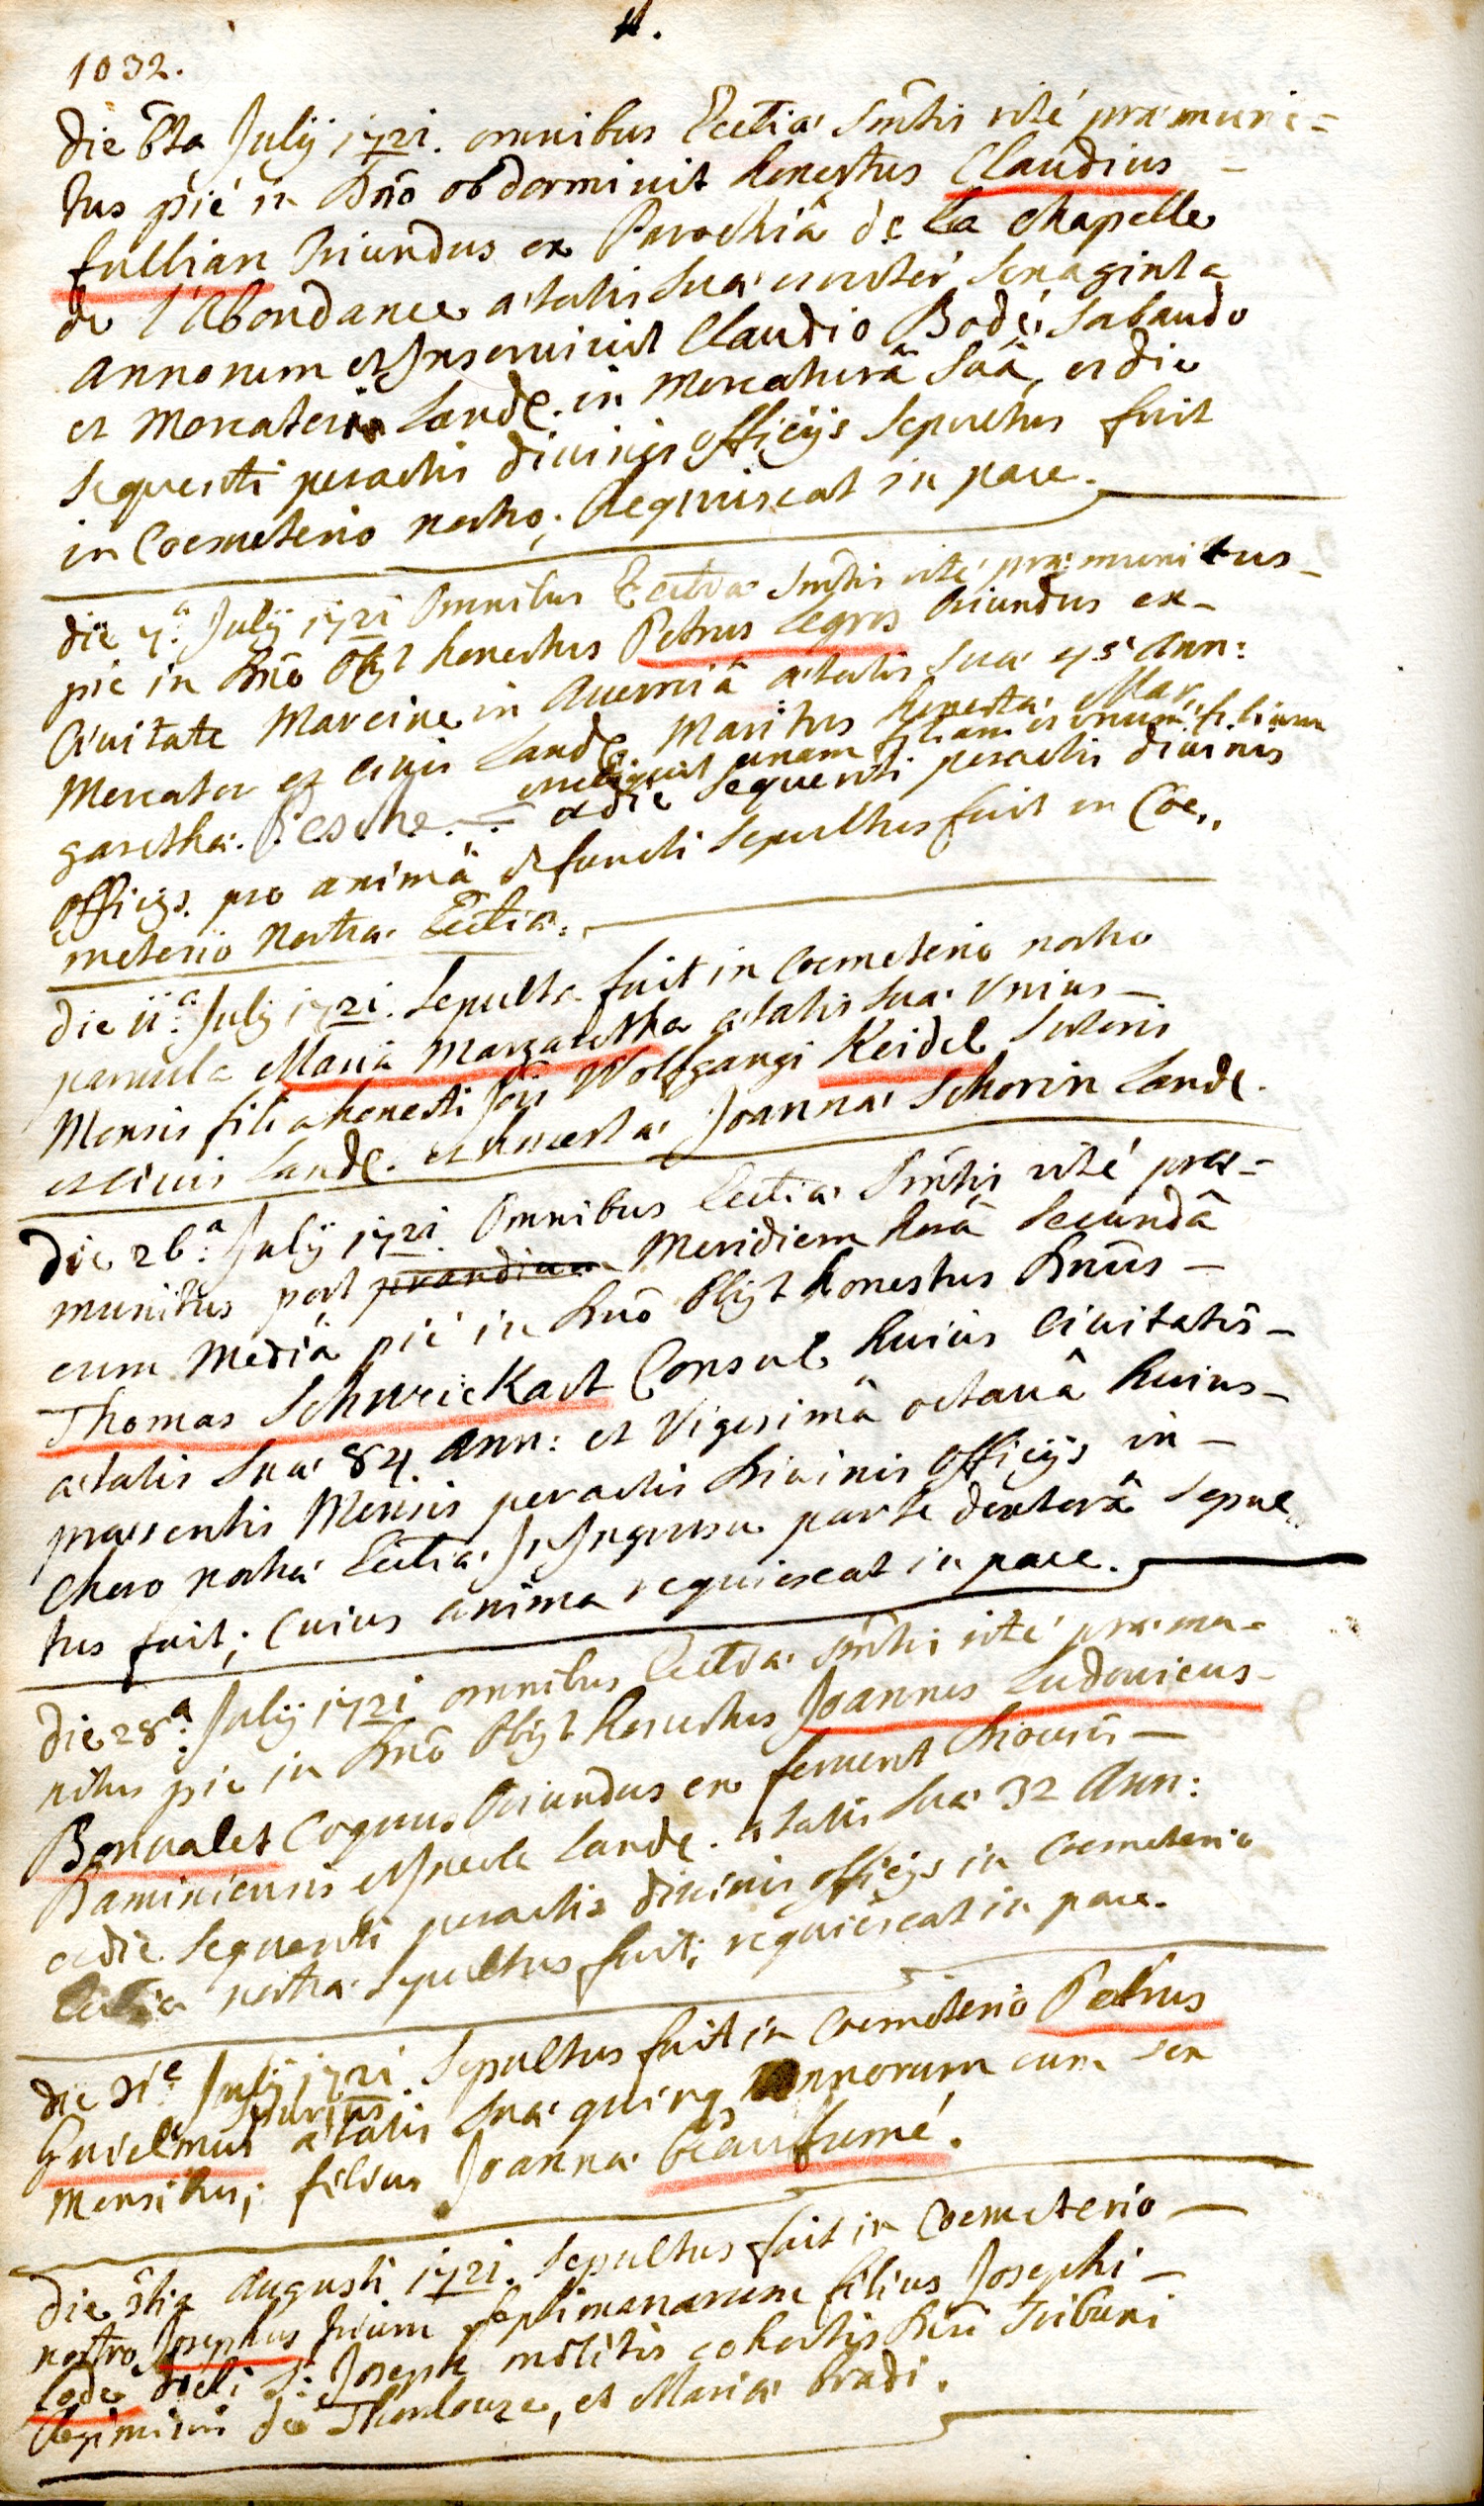 1032.
die 6ta Julÿ 1721. omnibus Ecctiæ Smtis rité præmuni=
tus pié in Dno obdormiuit honestus Claudius -
fullian Oriundus ex Parochiâ de la Chapelle
de l'Abondance ætatis Suæ circiter Sexaginta
Annorum et Inseruiuit Claudio Bodé, Sabaudo
et Mercatori Landl. in Mercaturâ Suâ, et die
Sequenti peractis diuinis officÿs Sepultus fuit
in Coemeterio nostro; Requiescat in pace.
die 7.a Julÿ 1721 Omnibus Ecctiæ Smtis rité præmunitus -
pie in Dno Obÿt honestus Petrus Legros Oriundus ex -
Ciuitate Marcine in Auerniâ ætatis Suæ 45 Ann:
Mercator et Ciuis Landl. Maritus honestæ Mar,,
garethæ. Pesche. =
et reliquit unam filiam et unum filium
et die Sequenti peractis diuinis
Officÿs. pro animâ defuncti Sepultus fuit in Coe,,
meterio Nostræ Ecctiæ.
die 11.a Julÿ 1721. Sepulta fuit in Coemeterio nostro
paruula Maria Margaretha ætatis Suæ Vnius -
Mensis filia honesti Jois Wolfgangi Keidel Sutoris
et Ciuis Landl. et honestæ Joannæ Schorin Landl.
Die 26.a Julÿ 1721. Omnibus Ecctiæ Smtis rité præ=
munitus post prandium Meridiem horâ Secundâ
cum Mediâ pié in Dno Obÿt honestus Dnus -
Thomas Schweickart Consul huius Ciuitatis -
ætatis Suæ 84. Ann: et Vigesimâ octauâ huius -
præsentis Mensis peractis Diuinis Officÿs in -
Choro nostræ Ecctiæ In Ingressu parte dexterâ Sepul,,
tus fuit; Cuius anima requiescat in pace.
Die 28.a Julÿ 1721 omnibus Ecctiæ Smtis rité præmu=
nitus pie in Dno Obÿt honestus Joannes Ludouicus -
Bonualet Coquus Oriundus ex feruent Diocesis -
Daminiensis et Incola Landl. ætatis Suæ 32 Ann:
et die Sequenti peractis diuinis officÿs in Coemeterio
Ecctiæ nostræ Sepultus fuit; requiescat in pace.
die 31.a Julÿ 1721. Sepultus fuit in Coemeterio Petrus
Spurius
Guielmus ætatis Suæ quinq Annorum cum sex
Mensibus; filius Joannæ beaufumé.
Die 5tia Augusti 1721. Sepultus fuit in Coemeterio -
nostro Josephus trium Septimanarum filius Josephi -
Lode dicti St Joseph militis cohortis Dni Tribuni
Regiminis de Thoulouze, et Mariæ bradi.